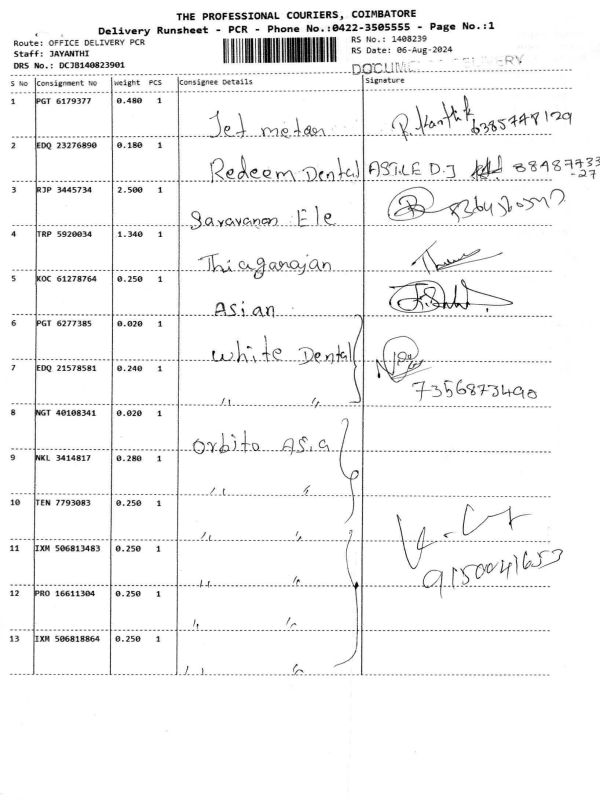 THE PROFESSIONAL COURIERS, COIMBATORE
Delivery Runsheet - PCR - Phone No.:0422-3505555 - Page No.:1
Route: OFFICE DELIVERY PCR
RS No.: 1408239
Staff: JAYANTHI
RS Date: 06-Aug-2024
DRS No.: DCJB140823901
S No Consignment No Weight PCS Consignee Details Signature
1 PGT 6179377 0.480 1
Jet metan 6385748129
2 EDQ 23276890 0.180 1
Redeem Dental
3 RJP 3445734 2.500 1
Saravanan Ele
4 TRP 5920034 1.340 1
Thiagarajan
5 KOC 61278764 0.250 1
Asian
6 PGT 6277385 0.020 1
White Dental
7 EDQ 21578581 0.240 1
" " 7356873490
8 NGT 40108341 0.020 1
Orbito Asia
9 NKL 3414817 0.280 1
" "
10 TEN 7793083 0.250 1
" "
11 IXM 506813483 0.250 1
" " 9150041653
12 PRO 16611304 0.250 1
" "
13 IXM 506818864 0.250 1
" "